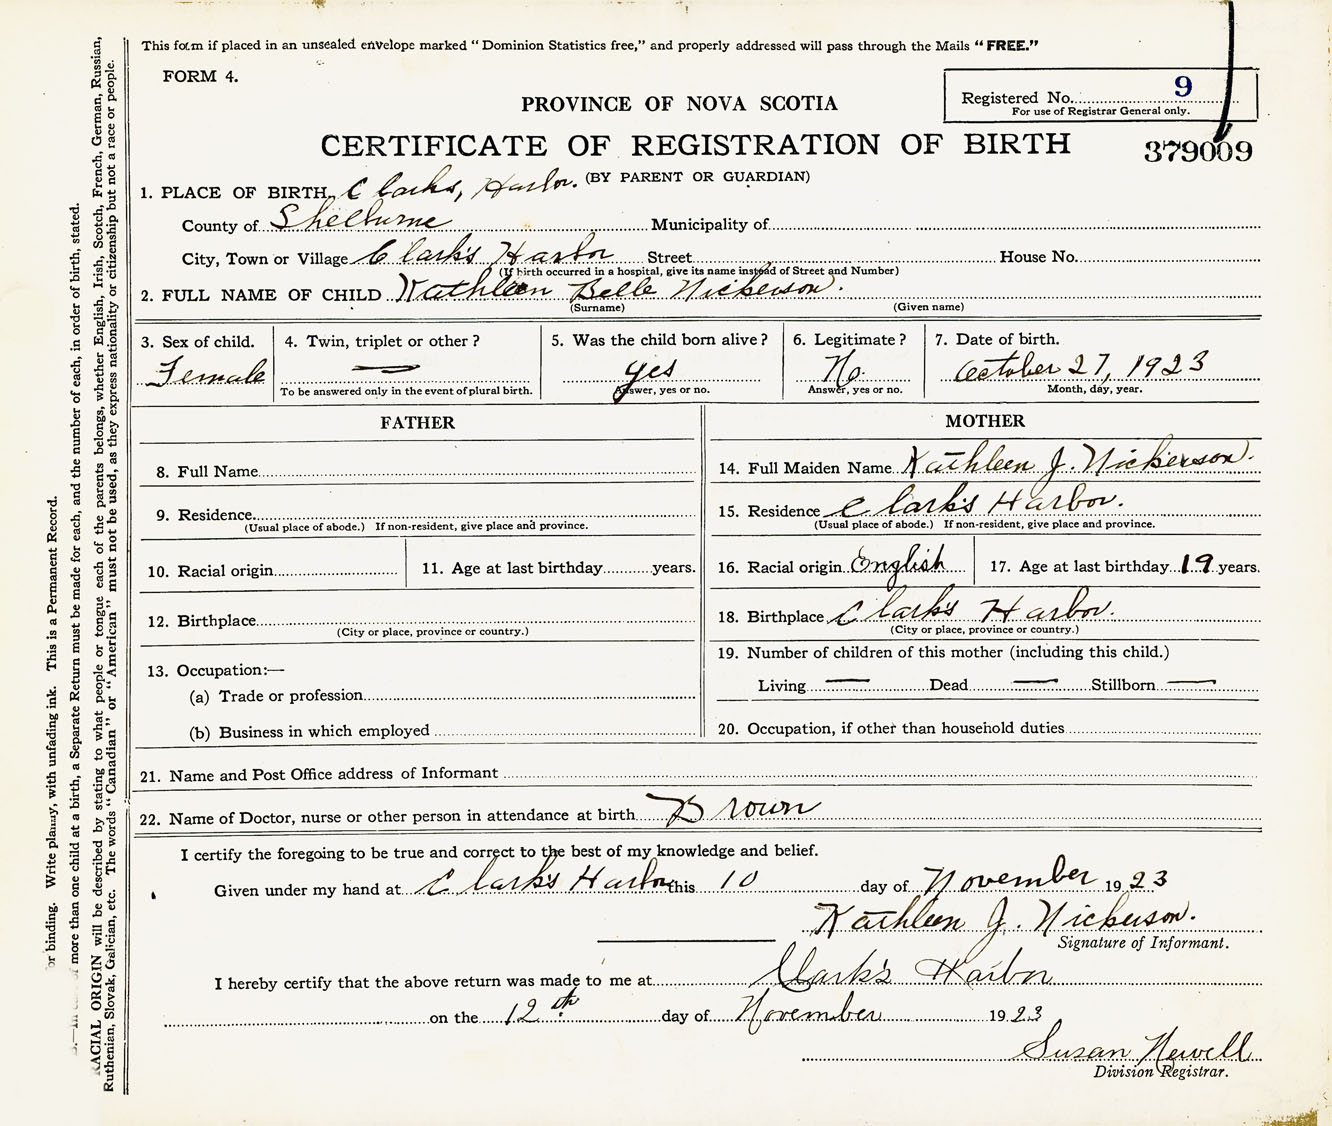 This form if placed in an unsealed envelope marked "Dominion Statistics free," and properly addressed will pass through the Mails "FREE."
FORM 4.
Registered No. 9
For use of Registrar General only.
PROVINCE OF NOVA SCOTIA
CERTIFICATE OF REGISTRATION OF BIRTH
379009
(BY PARENT OR GUARDIAN)
1. PLACE OF BIRTH Clarks, Harbor.
County of Shelburne Municipality of
City, Town or Village Clark's Harbor Street House No.
(If birth occurred in a hospital, give its name instead of Street and Number)
2. FULL NAME OF CHILD Kathleen Belle Nickerson.
(Surname) (Given name)
3. Sex of child. 4. Twin, triplet or other? 5. Was the child born alive? 6. Legitimate? 7. Date of birth.
Female — yes No. October 27, 1923
To be answered only in the event of plural birth. Answer, yes or no. Answer, yes or no. Month, day, year.
FATHER
8. Full Name
9. Residence
(Usual place of abode.) If non-resident, give place and province.
10. Racial origin 11. Age at last birthday years.
12. Birthplace
(City or place, province or country.)
13. Occupation:—
(a) Trade or profession
(b) Business in which employed
MOTHER
14. Full Maiden Name Kathleen J. Nickerson.
15. Residence Clark's Harbor.
(Usual place of abode.) If non-resident, give place and province.
16. Racial origin English 17. Age at last birthday 19 years.
18. Birthplace Clark's Harbor.
(City or place, province or country.)
19. Number of children of this mother (including this child.)
Living — Dead — Stillborn —
20. Occupation, if other than household duties
21. Name and Post Office address of Informant
22. Name of Doctor, nurse or other person in attendance at birth Brown
I certify the foregoing to be true and correct to the best of my knowledge and belief.
Given under my hand at Clark's Harbor this 10 day of November 1923
Kathleen J. Nickerson.
Signature of Informant.
I hereby certify that the above return was made to me at Clark's Harbor
on the 12th day of November 1923
Susan Newell
Division Registrar.
or binding. Write plainly, with unfading ink. This is a Permanent Record.
more than one child at a birth, a Separate Return must be made for each, and the number of each, in order of birth, stated.
RACIAL ORIGIN will be described by stating to what people or tongue each of the parents belongs, whether English, Irish, Scotch, French, German, Russian,
Ruthenian, Slovak, Galician, etc. The words "Canadian" or "American" must not be used, as they express nationality or citizenship but not a race or people.